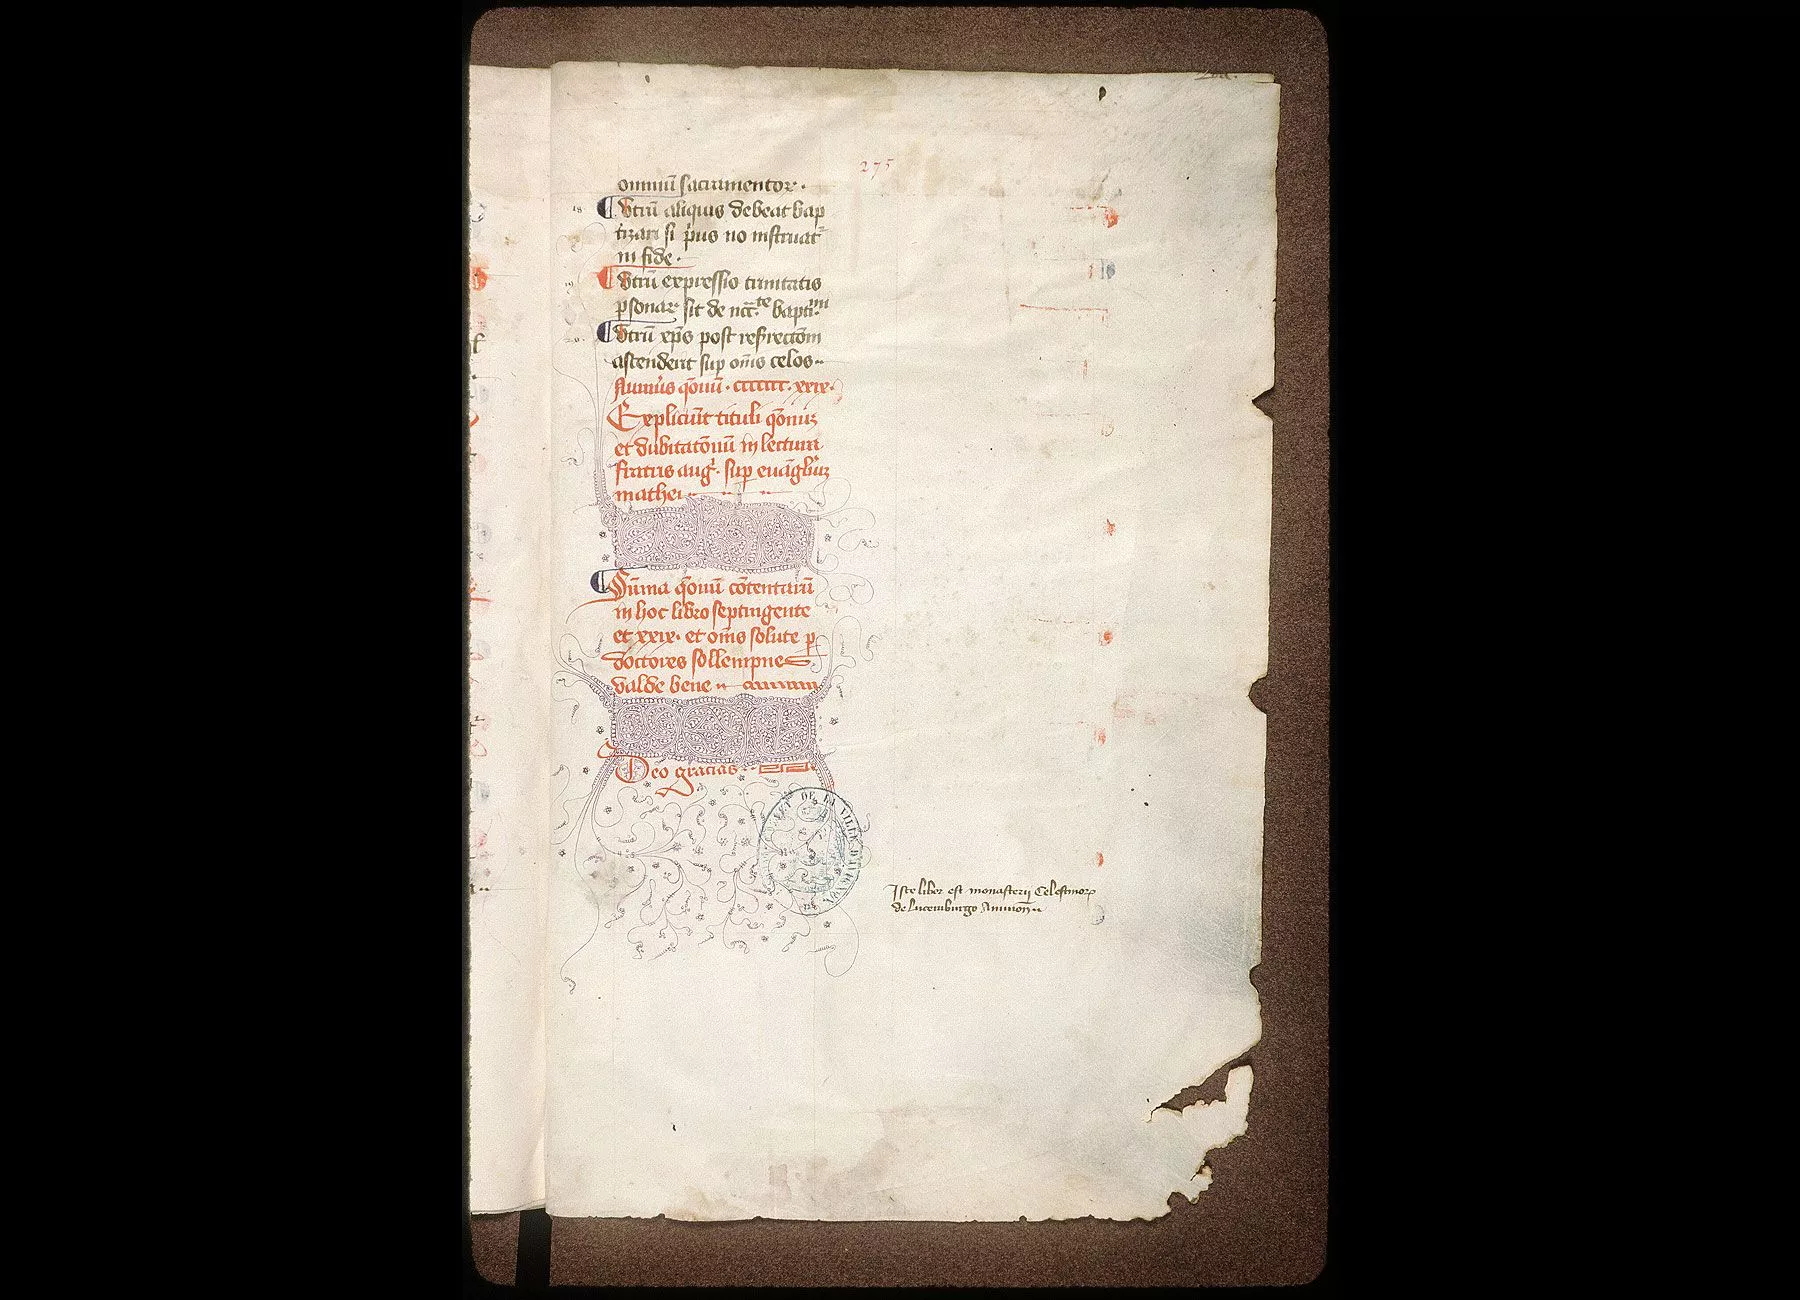 275
omniū sacramentoꝝ.
18 Vtrū aliquis debeat bap
tizari si pͥus nō instruat᷑
in fide.
19 Vtrū expressio trinitatis
ꝑsonaꝝ sit de ncc̄.te bapti.mi
20 Vtrū xp̄s post resr̄rectōm
ascenderit suꝑ om̄s celos
Numꝰus q̄onū. ccccccc. xxix.
Expliciūt tituli q̄onū
et dubitatōnū in lectura
fratris aug. suꝑ euāgliū
mathei
Sūma q̄onū cōtentarū
in hoc libro septingente
et xxix. et om̄s solute ꝑ
doctores sollempnes
valde bene
Deo gracias
DE LA VILLE D'AVIGNON
Iste liber est monasterij Celestinoꝝ
de lucemburgo Auinion̄